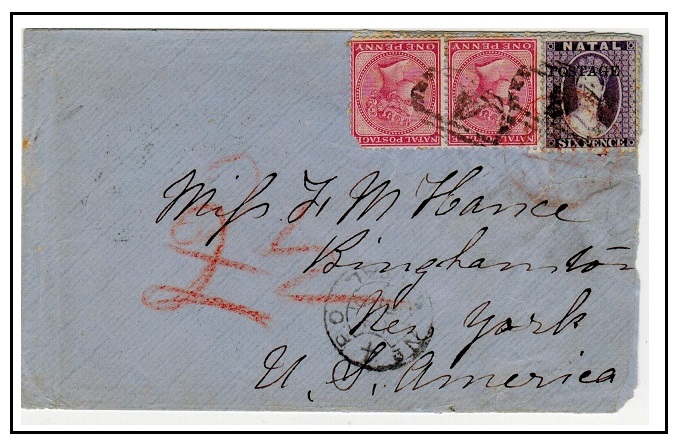 NATAL POSTAGE
ONE PENNY
NATAL POSTAGE
ONE PENNY
NATAL
POSTAGE
SIX PENCE
Miss F M Hance
Binghamton
New York
U. S. America
2½